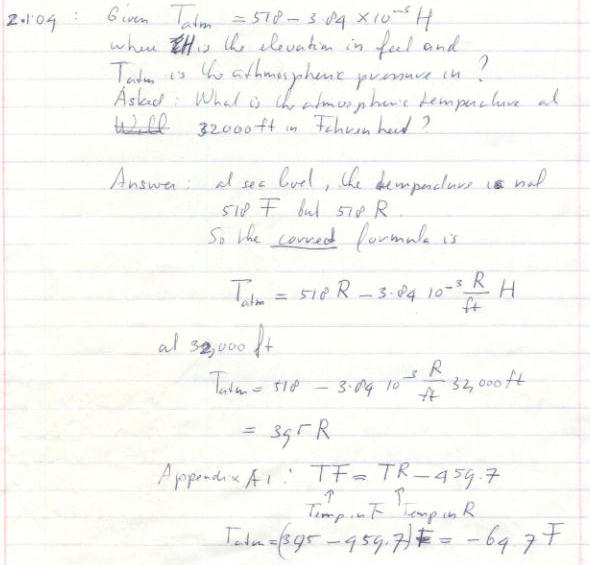 2.104 : Given Tatm = 518 - 3.84 x 10⁻³ H
where H is the elevation in feet and
Tatm is the athmospheric pressure in ?
Asked : What is the atmospheric temperature at
32000 ft in Fahrenheit ?
Answer : at sea level, the temperature is not
518 F but 518 R.
So the correct formula is
Tatm = 518 R - 3.84 10⁻³ R/ft H
at 32,000 ft
Tatm = 518 - 3.84 10⁻³ R/ft 32,000 ft
= 395 R
Appendix A1 : TF = TR - 459.7
↑ ↑
Temp in F Temp in R
Tatm = (395 - 459.7) F = -64.7 F